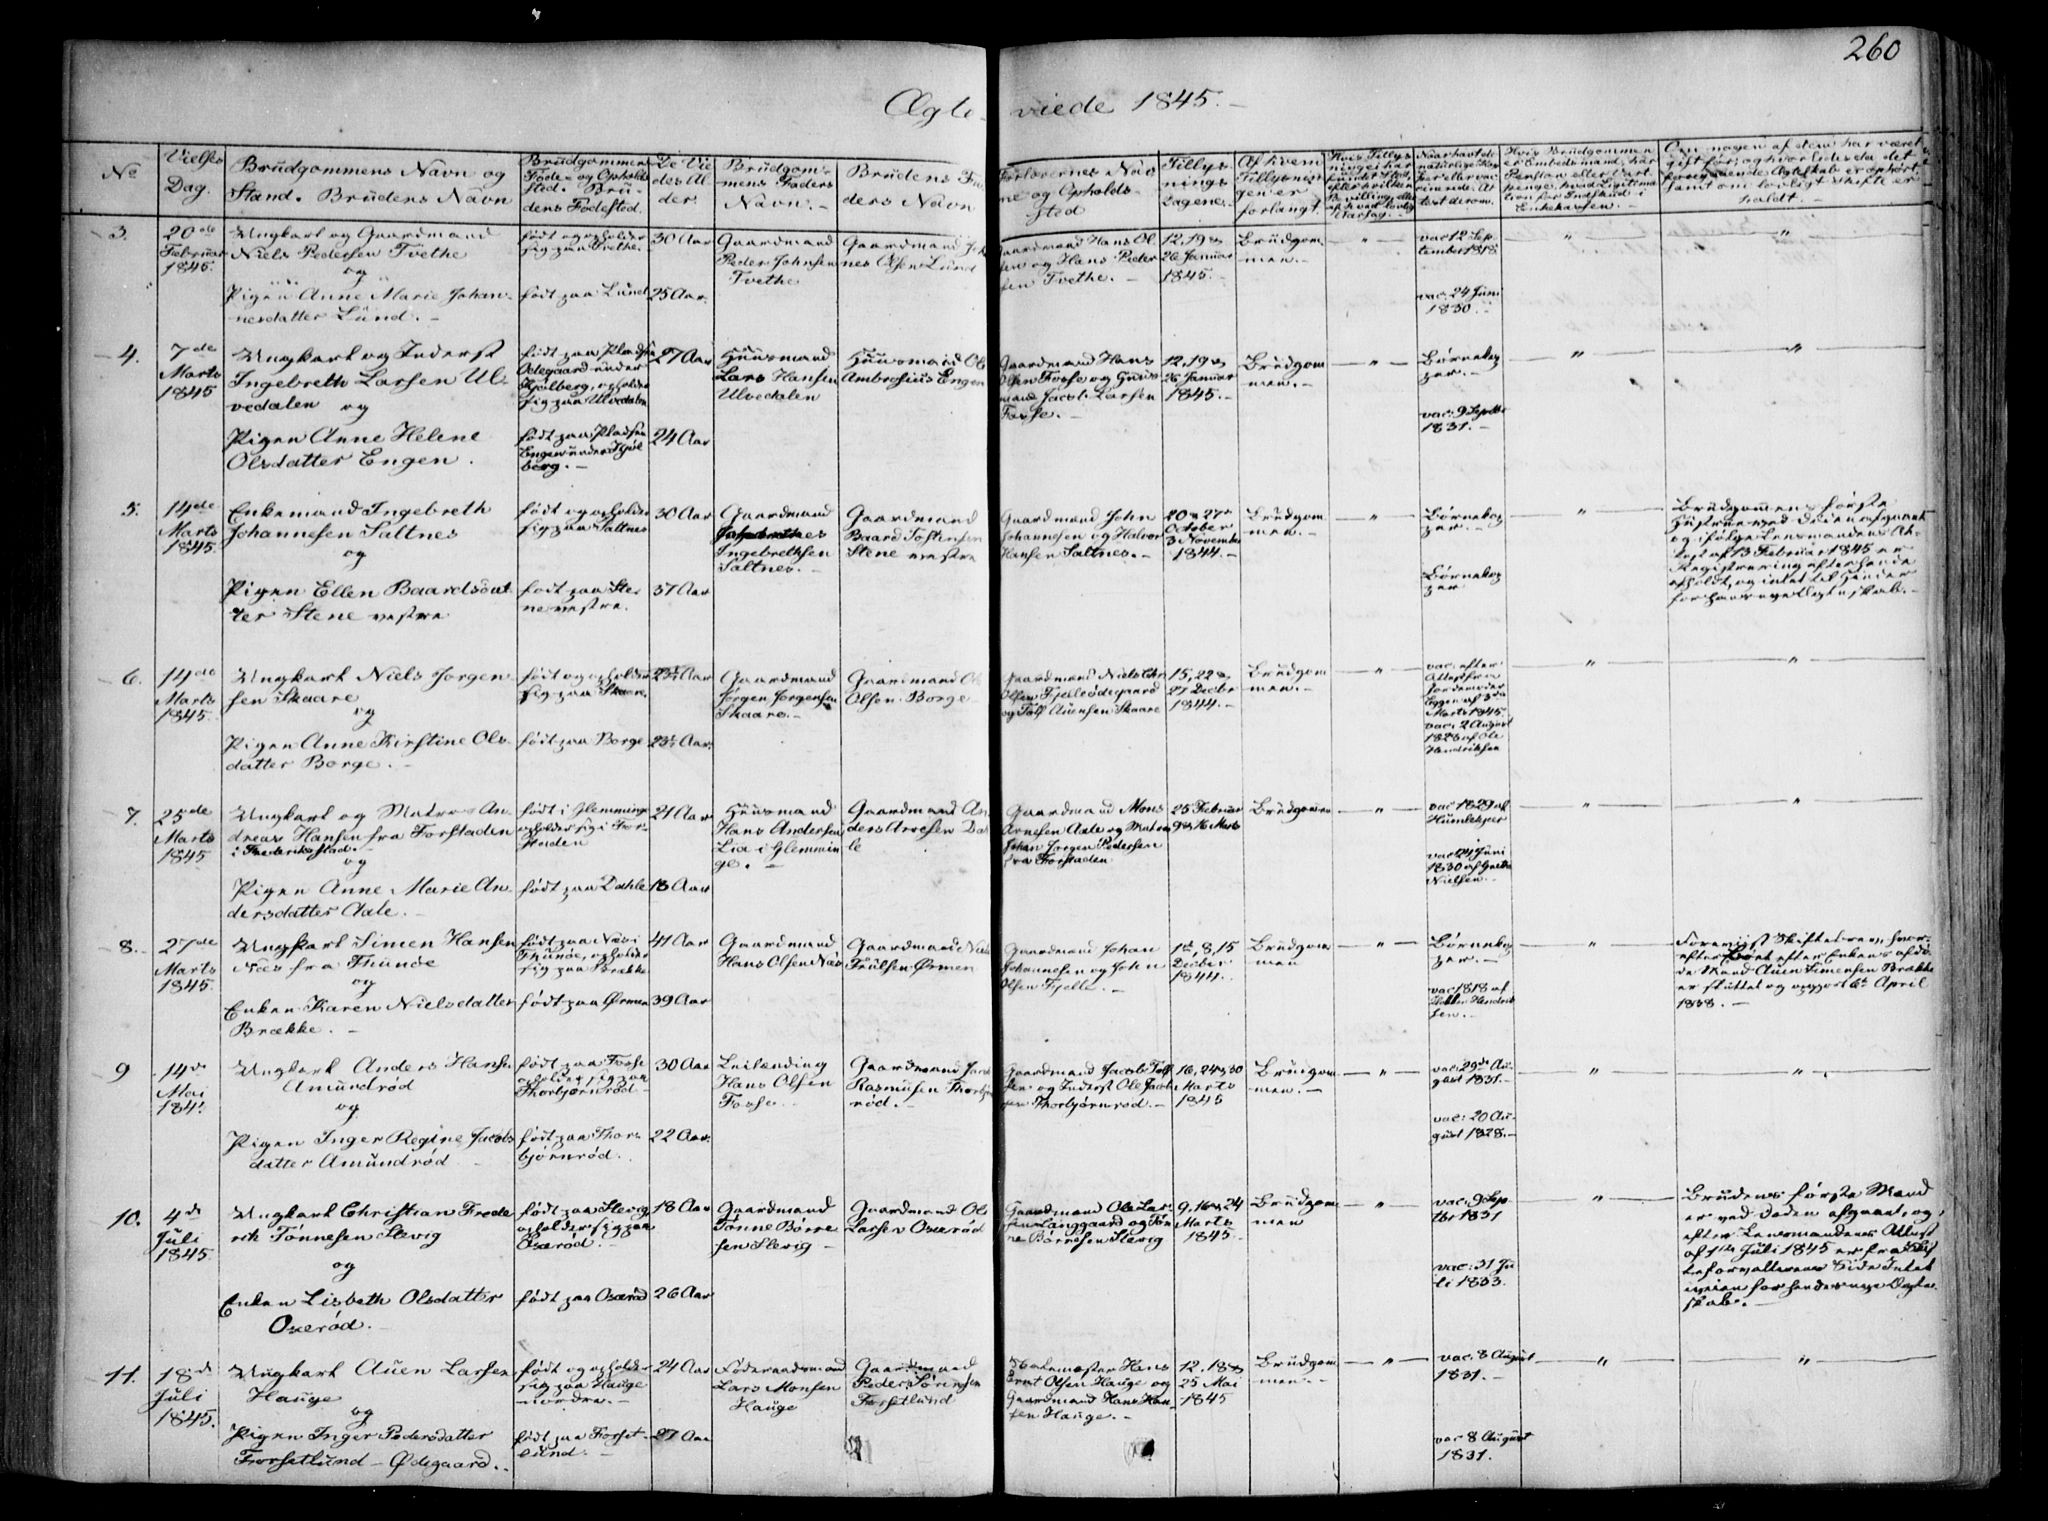 260
Ægte- viede 1845.
No
Vielses
Dag.
Brüdgommens Navn og
Stand. Brüdens Navn
Brüdgommens
Føde- og Opholds
sted. Brü-
dens Fødested.
De Vie
des Al-
der.
Brüdgom-
mens Faders
Navn.
Brüdens Fa-
ders Navn
Forlovernes Nav
ne og Opholds-
sted
Tillys-
nings
Dagene.
Af hvem
Tillysnin-
gen er
forlangt.
3.
20de
Februar
1845.
Ungkarl og Gaardmand
Niels Pedersen Tvethe
og
Pigen Anne Marie Johan-
nesdatter Lünd.
født og opholder
sig paa Tvethe.
født paa Lünd
30 Aar
25 Aar.
Gaardmand
Peder Johnsen
Tvethe
Gaardmand Joh
nes Olsen Lünd
Gaardmand Hans Ol-
sen og Hans Peder
sen Tvethe.
12, 19 &
26 Januar
1845.
Brüdgom-
men.
vac 12 Sep
tember 1818.
vac. 24 Juni
1830.
4.
7de
Marts
1845
Ungkarl og Inderst
Ingebreth Larsen Ul-
vedalen og
Pigen Anne Helene
Olsdatter Engen.
født paa Pladsen
Ødegaard under
Kjølberg, opholder
sig paa Ulvedalen
født paa Pladsen
Engen under Kjøl
berg.
27 Aar
24 Aar
Hüüsmand
Lars Hansen
Ulvedalen
Hüüsmand Ol
Ambrosius Engen
Gaardmand Hans
Olsen Fosse og Huus
mand Jacob Larsen
Fosse.
12, 19 &
26 Januar
1845.
Brüdgom
men.
Børneko
per.
vac. 9 Septbr
1831.
5.
14de
Marts
1845.
Enkemand Ingebreth
Johannesen Saltnes
og
Pigen Ellen Baardsdat
ter Stene vestre
født og opholder
sig paa Saltnes
født paa Ste-
ne vestre.
30 Aar
37 Aar
Gaardmand
Ingebrethsen
Saltnes.
Gaardmand
Baard Tostensen
Stene vestre
Gaardmand John
Johannesen og Halvor
Hansen Saltnes.
20 & 27
October
3 November
1844.
Brüdgom
men.
Børneko
per.
Børneko
per
Brüdgommens første
Hüstrüe ved Døden afgaaet
og ifølge Lensmandens At-
test af 13 Februar 1845 er
Registrering efter hende
afholdt, og intet til Hinder
for hans nye Ægteskab.
6.
14de
Marts
1845.
Ungkarl Niels Jørgen-
sen Skaare
og
Pigen Anne Kirstine Ols-
datter Borge.
født og opholder
sig paa Skaare.
født paa Borge
23½ Aar.
Gaardmand
Jørgen Jørgensen
Skaare.
Gaardmand Ol
Olsen Borge
Gaardmand Niels Chr
Olsen Fjelleødegaard
og Tolf Auensen Skaare
15, 22 &
27 Decbr
1844.
Brüdgom
men.
vac. efter
Attest fra
Jordemoder
Eggen af 3de
Marts 1845.
vac. 2 August
1826 af Ole
Hendriksen
7.
25de
Marts
1845
Ungkarl og Matros An-
dreas Hansen fra Forstaden
i Frederiksstad.
og
Pigen Anne Marie An-
dersdatter Aale.
født i Glemminge
opholder sig i For-
staden
født paa Dahle
21 Aar
18 Aar
Hüüsmand
Hans Andersen
Lia i Glemmin
ge.
Gaardmand An
ders Arnesen Da
le
Gaardmand Mons
Arnesen Aale og Matros
Johan Jørgen Pedersen
fra Forstaden
25 Februar
9 & 16 Marts
Brüdgommen
vac 1829 af
Humlekjer
vac 24 Juni
1830 af Grethe
Nielsen.
8.
27de
Marts
1845.
Ungkarl Simen Hansen
Næs fra Thünøe
og
Enken Karen Nielsdatter
Brække.
født paa Næs i
Thünøe, opholder
sig paa Brække
født paa Ørmen
41 Aar
39 Aar
Gaardmand
Hans Olsen Næs
Gaardmand Niels
Trülsen Ørmen
Gaardmand Johan
Johannesen og John
Olsen Fjelle.
1st, 8, 15
Decbr
1844.
Brüdgom
men
Børneko
per.
vac 1818 af
Hendrik
sen.
Foreviist Skiftebrev, hvor-
efter Boet efter Enkens afdø-
de Mand Auen Simensen Brække
er sluttet og opgjort 6te April
1838.
9
14de
Mai
184
Ungkarl Anders Hansen
Amündrød
og
Pigen Inger Regine Jacobs
datter Amündrød
født paa Fosse
opholder sig paa
Thorbjørnrød.
født paa Thor-
bjørnrød.
30 Aar
22 Aar.
Leilending
Hans Olsen
Fosse.
Gaardmand Jacob
Rasmüsen Thorbjørn
rød.
Gaardmand Jacob Tolf
sen og Inderst Ole Jacob
sen Thorbjørnrød.
16, 24 & 30
Marts
1845
Brüdgom
men.
vac. 29de Au-
gust 1831.
vac: 20 Au-
gust 1828.
10.
4de
Juli
1845.
Ungkarl Christian Frede
rik Tønnesen Slevig
og
Enken Lisbeth Olsdatter
Oxerød.
født paa Slevig
opholder sig paa
Oxerød.
født paa Oxerød
18 Aar
26 Aar
Gaardmand
Tønne Børre
sen Slevig
Gaardmand Ole
Larsen Oxerød
Gaardmand Ole Lar-
sen Langgaard og Tøn
ne Børresen Slevig
9, 16 & 24
Marts
1845.
Brüdgom
men
vac. 9 Sep-
tbr 1831
vac: 31 Ju
li 1833.
Brüdens første Mand
er ved Døden afgaaet, og
efter Lensmandens Attest
af 1ste Juli 1845 er fra Skif
teforvalterens Side Intet
iveien for hendes nye Ægte-
skab.
11.
18de
Juli
1845.
Ungkarl Aüen Larsen
Haüge
og
Pigen Inger Pedersdatter
Forsetlund-Ødegaard.
født og opholder
sig paa Haüge
nordre.
født paa Forset-
lünd.
24 Aar
27 Aar
Føderaadsmand
Lars Monsen
Haüge
Gaardmand
Peder Sørensen
Forsetlünd
Hans
Olsen Haüge og
Gaardmand Hans Han-
sen Haüge.
12, 18 &
25 Mai
1845
Brüdgom-
men.
vac. 8 August
1831.
vac 8 August
1831.